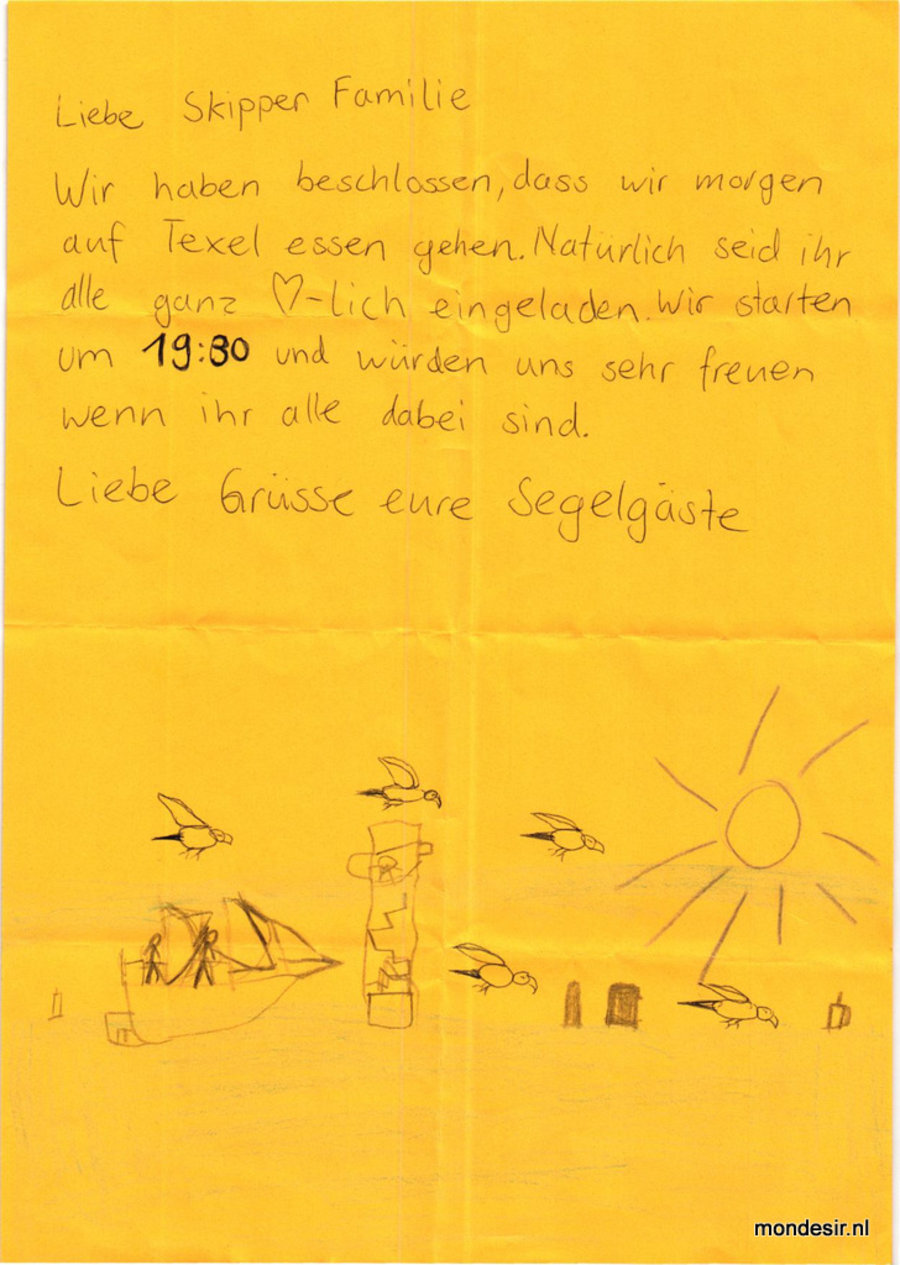 Liebe Skipper Familie
Wir haben beschlossen, dass wir morgen
auf Texel essen gehen. Natürlich seid ihr
alle ganz ♡-lich eingeladen. Wir starten
um 19:30 und würden uns sehr freuen
wenn ihr alle dabei sind.
Liebe Grüsse eure Segelgäste
mondesir.nl